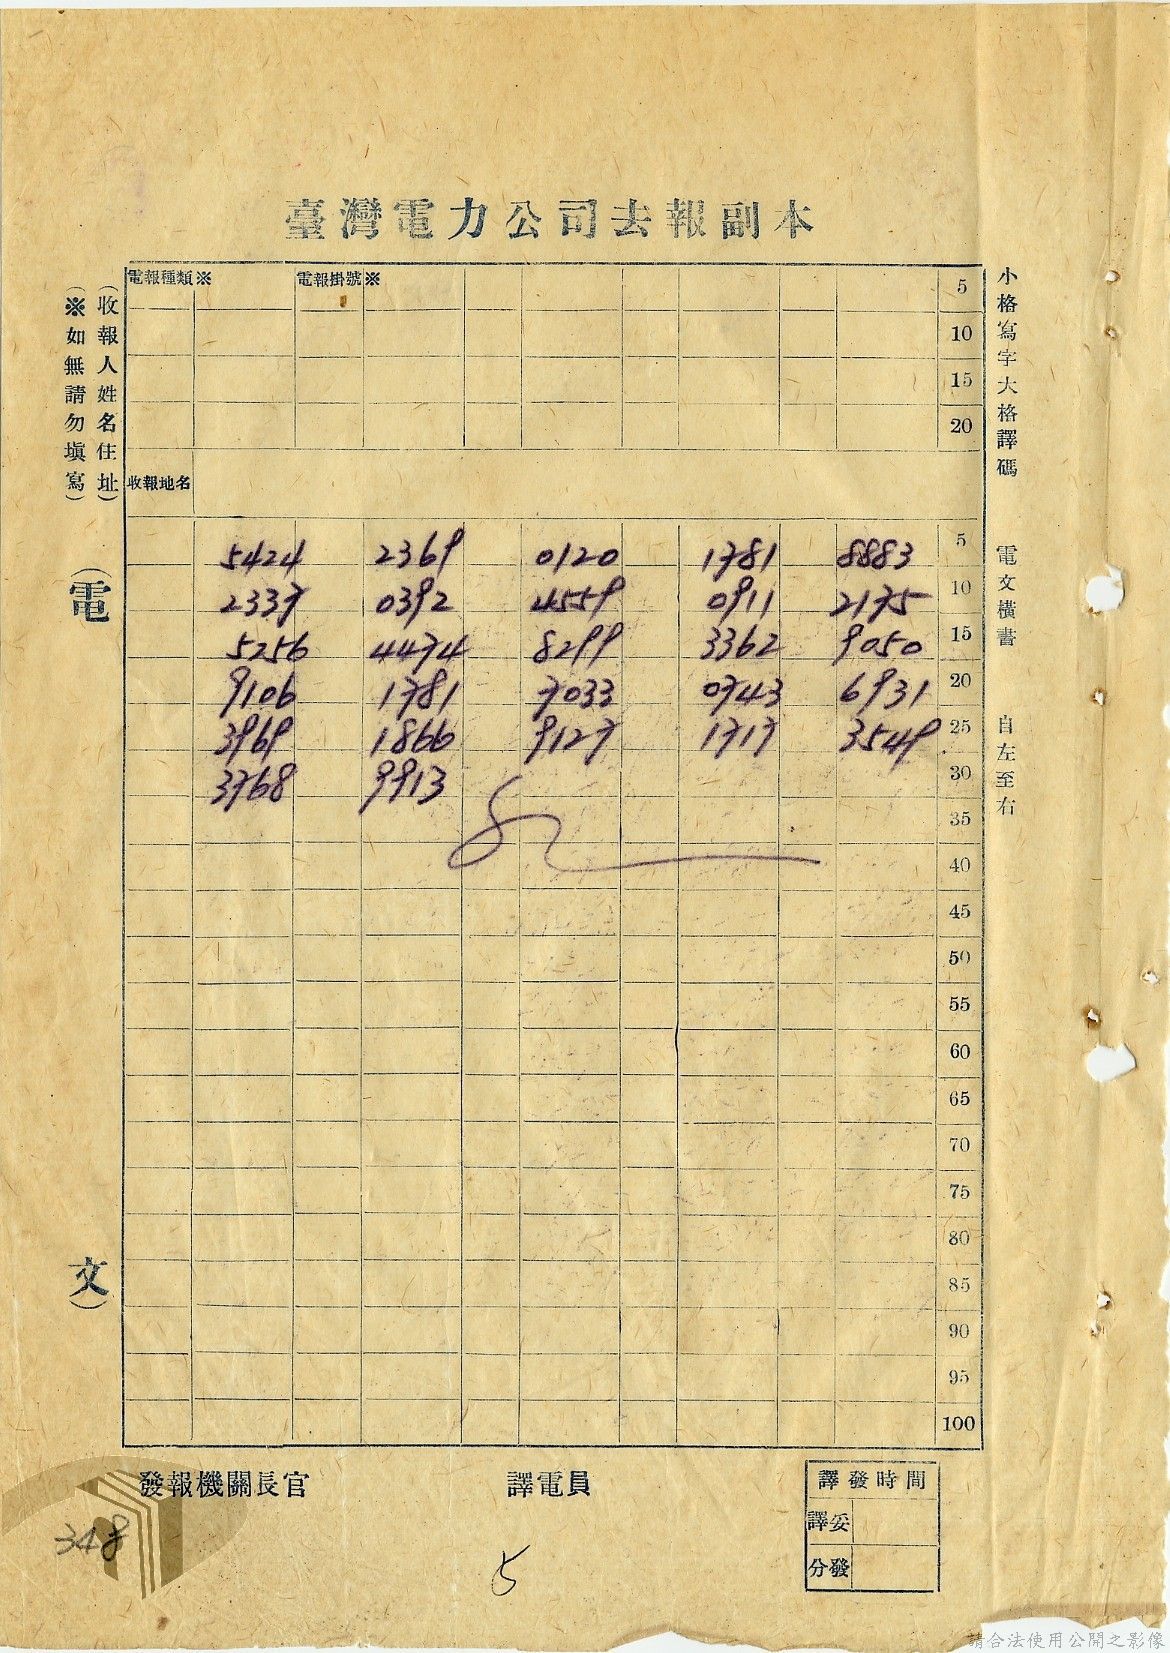 臺灣電力公司去報副本
電報種類※ 電報掛號※ 5
10
15
20
收報地名
(收報人姓名住址)
(※如無請勿填寫)
小格寫字大格譯碼 電文橫書 自左至右
(電文)
5424 2369 0120 1781 8883 5
2337 0392 4559 0911 2175 10
5256 4474 8299 3362 9050 15
9106 1781 7033 0743 6931 20
3969 1866 9127 1717 3549 25
3768 9913 30
35
40
45
50
55
60
65
70
75
80
85
90
95
100
發報機關長官 譯電員 譯發時間
譯妥
分發
348
5
請合法使用公開之影像